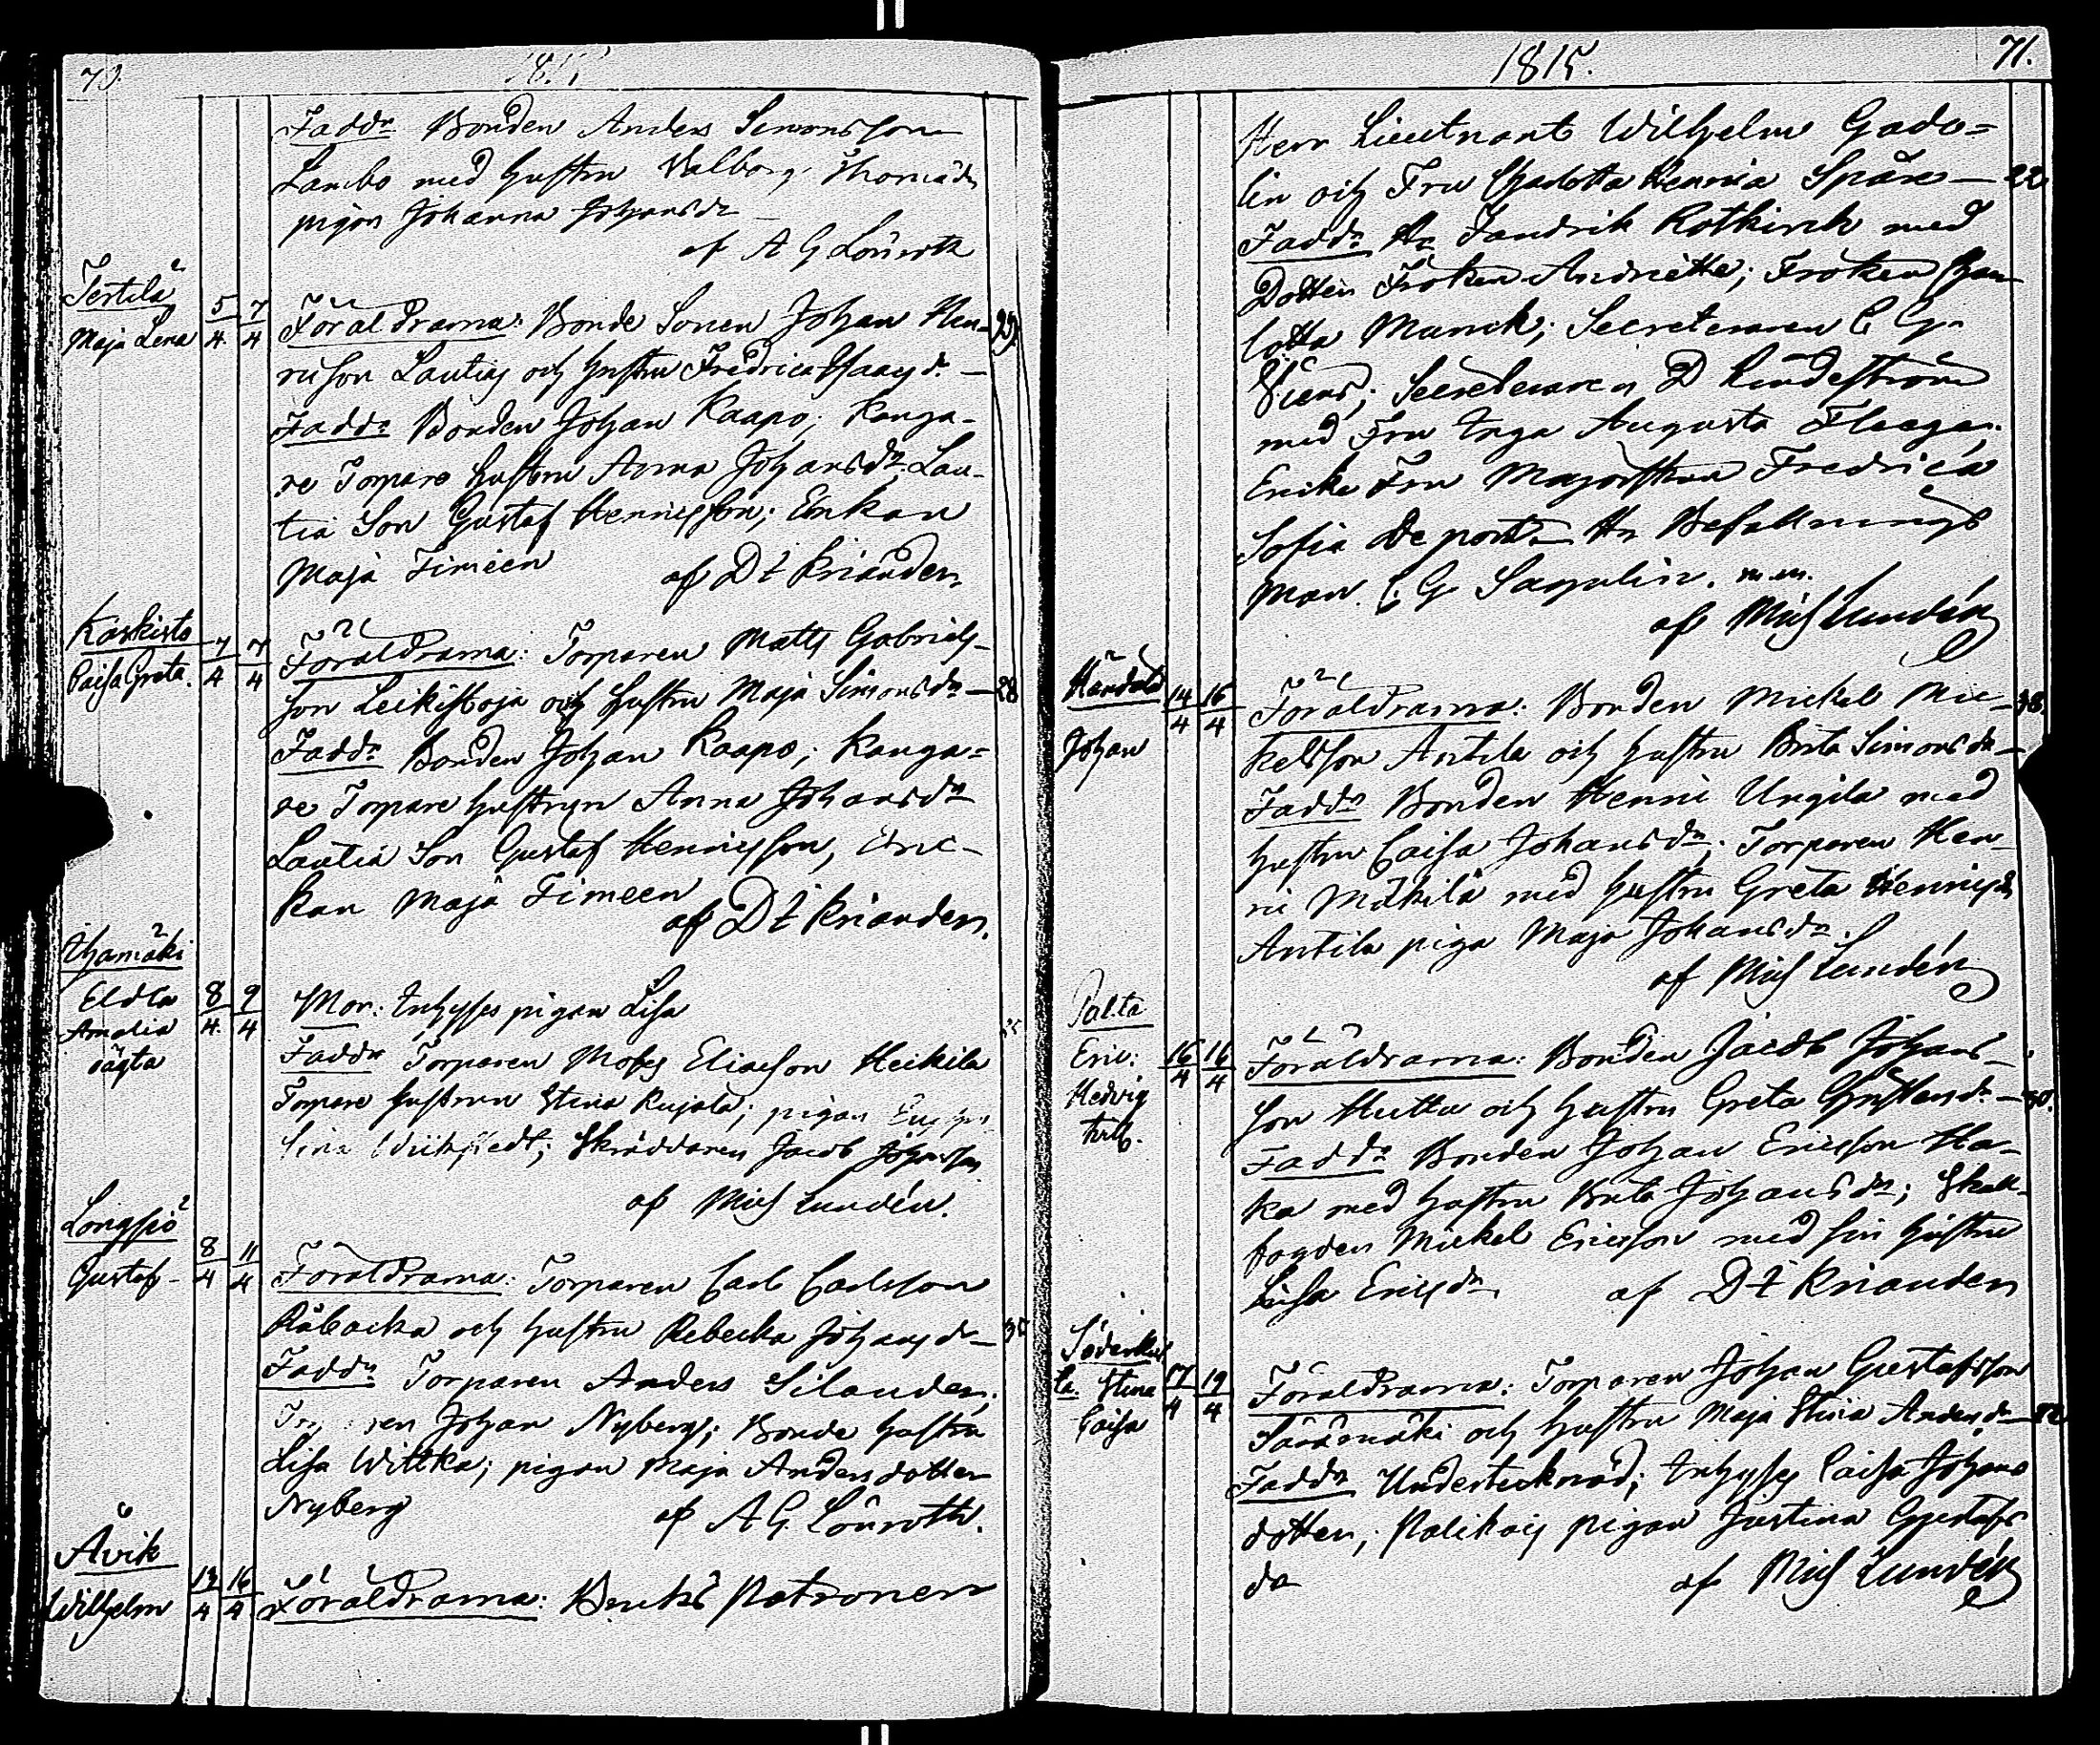 70. 1815
Fadd:r Bonden Anders Simonsson
Lambo med hustru Valborg Thomädr
pigan Johanna Johansdr
af A G Lönroth
Tertilä
Maja Lena 5/4 7/4
Föräldrarna: Bonde Sonen Johan Hen-
ricsson Lautia och hustru Fredrica Isaacsdr — 29.
Fadd:r Bonden Johan Kaapo; Kanga-
re Torpare hustru Anna Johansdr Lau-
tia Son Gustaf Henricsson; Enkan
Maja Fimeen af D:t Kriander.
Karkisto
Caisa Greta. 7/4 7/4
Föräldrarna: Torparen Matts Gabriels-
son Leikistoja och hustru Maja Simonsdr — 28
Fadd:r Bonden Johan Kaapo; Kanga-
re Torpare hustrun Anna Johansdr
Lautia Son Gustaf Henricsson, Enc-
kan Maja Fimeen
af D:t Kriander.
Uhamäki
Eldla
Amalia
oägta 8/4 9/4
Mor: Inhyses pigan Lisa
Fadd:r Torparen Moses Eliasson Heikila
Torpare hustrun Stina Kujala; pigan
Skräddaren Jacob Johansson
af Mich Lundén.
Longsjö
Gustaf 8/4 11/4
Föräldrarna: Torparen Carl Carlsson
Råbacka och hustru Rebecka Johansdr —
Fadd:r Torparen Anders Silander;
Johan Nyberg; Bonde hustru
Lisa Wittka; pigan Maja Andersdotter
Nyberg af A G. Lönroth.
Åvik
Wilhelm 13/4 16/4
Föräldrarna: Bruks Patronen
1815. 71.
Herr Lieutnant Wilhelm Gado-
lin och Fru Charlotta Henrica Spåre — 22
Fadd:r Hr Fendrik Rotkirch med
Dotter Fröken Andriette; Fröken Char-
lotta Munck; Secreteraren C G.
Secreteraren D Lindeström
med Fru Inga Augusta Flaege.
Enke Fru Majorskan Fredrica
Sofia de pont. Hr Befallnings
Man. C. G Sagulin. m.m.
af Mich Lundén
Händälä
Johan 14/4 16/4
Föräldrarna: Bonden Mickel Mic- 38.
kelsson Antila och hustru Brita Simonsdr —
Fadd:r Bonden Henric Ungila med
hustru Caisa Johansdr; Torparen Hen-
ric Mäkilä med hustru Greta Henricsdr
Antila piga Maja Johansdr.
af Mich Lundén
Palta
Eric:
Hedvig
tvill. 16/4 16/4
Föräldrarna: Bonden Jacob Johans-
son Hutta och hustru Greta Christiansdr — 30.
Fadd:r Bonden Johan Ericsson Ha-
ka med hustru Brita Johansdr; Skall-
fogden Mickel Ericsson med sin hustru
Lisa Ericsdr af D:t Kriander
Söderkul
la. Stina
Caisa 17/4 19/4
Föräldrarna: Torparen Johan Gustafsson
Sääsmäki och hustru Maja Stina Andersdr —
Fadd:r Undertecknad; Inhyses Caisa Johans
dotter; Palikais pigan Justina Gustafs
dr af Mich Lundén